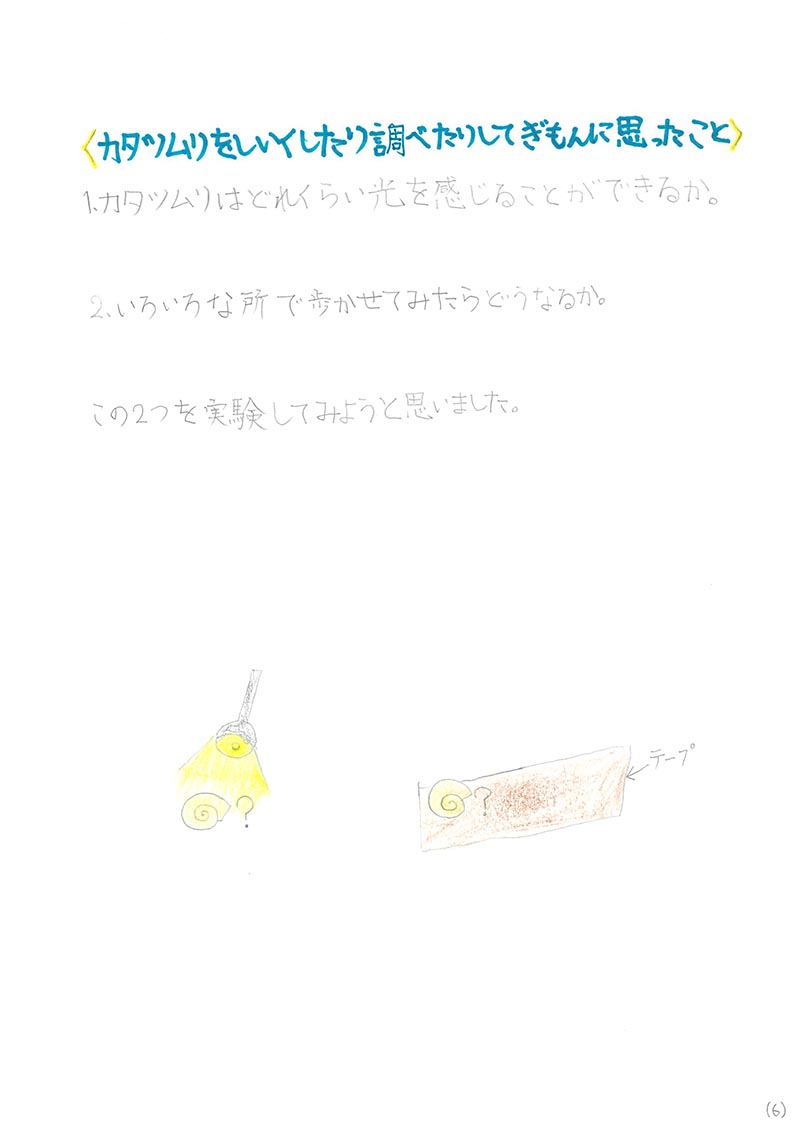 〈カタツムリをしいくしたり調べたりしてぎもんに思ったこと〉
1.カタツムリはどれくらい光を感じることができるか。
2.いろいろな所で歩かせてみたらどうなるか。
この2つを実験してみようと思いました。
?
?
テープ
(6)